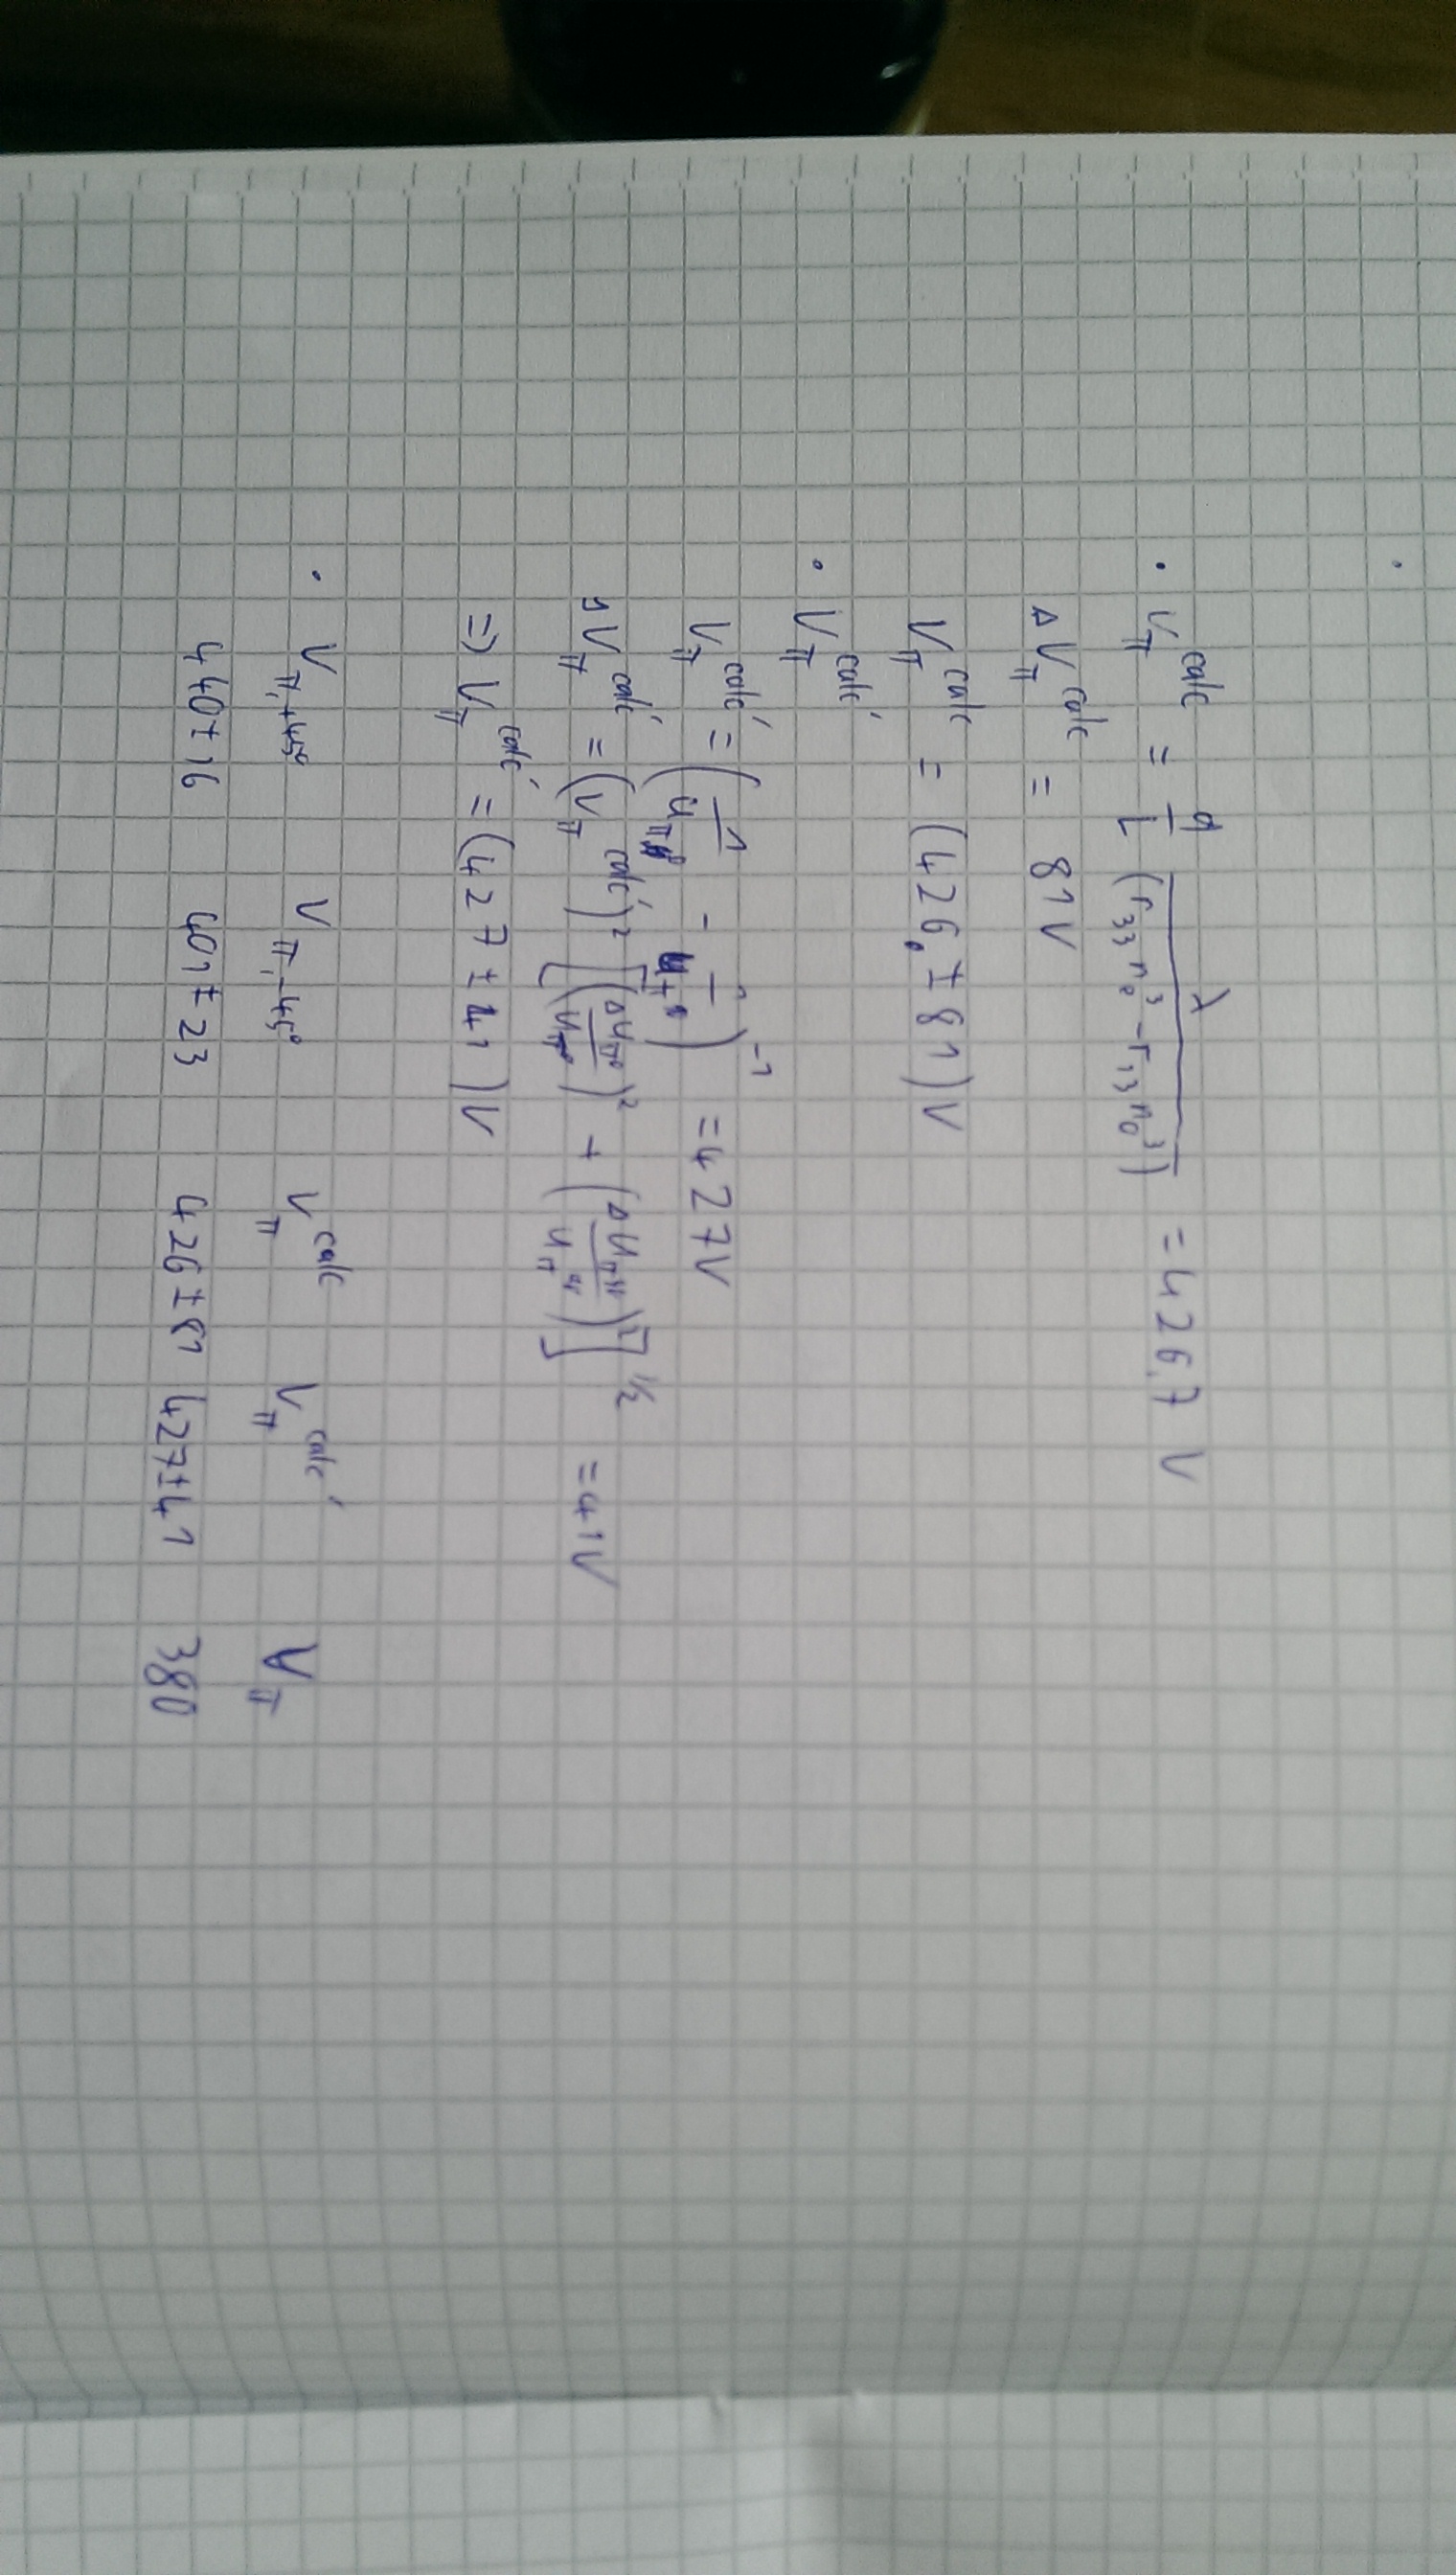 · V_π^calc = d/L λ/(r₃₃ n_e³ - r₁₃ n₀³) = 426,7 V
ΔV_π^calc = 81V
V_π^calc = (426 ± 81)V
· V_π^calc'
V_π^calc' = (1/U_π - 1/U_π)^-1 = 427V
ΔV_π^calc' = (V_π^calc')² [(ΔU_π/U_π)² + (ΔU_π^4/U_π^4)²]^1/2 = 41V
=> V_π^calc' = (427 ± 41)V
· V_π,+45° V_π,-45° V_π^calc V_π^calc' V_π
440±16 401±23 426±81 427±41 380